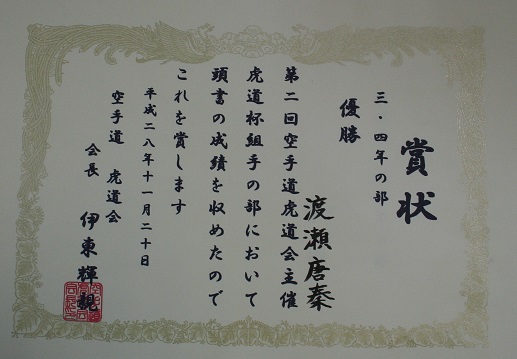 賞状
三・四年の部
優勝
渡瀬唐秦
第二回空手道虎道会主催
虎道杯組手の部において
頭書の成績を収めたので
これを賞します
平成二八年十一月二十日
空手道 虎道会
会長 伊東輝親